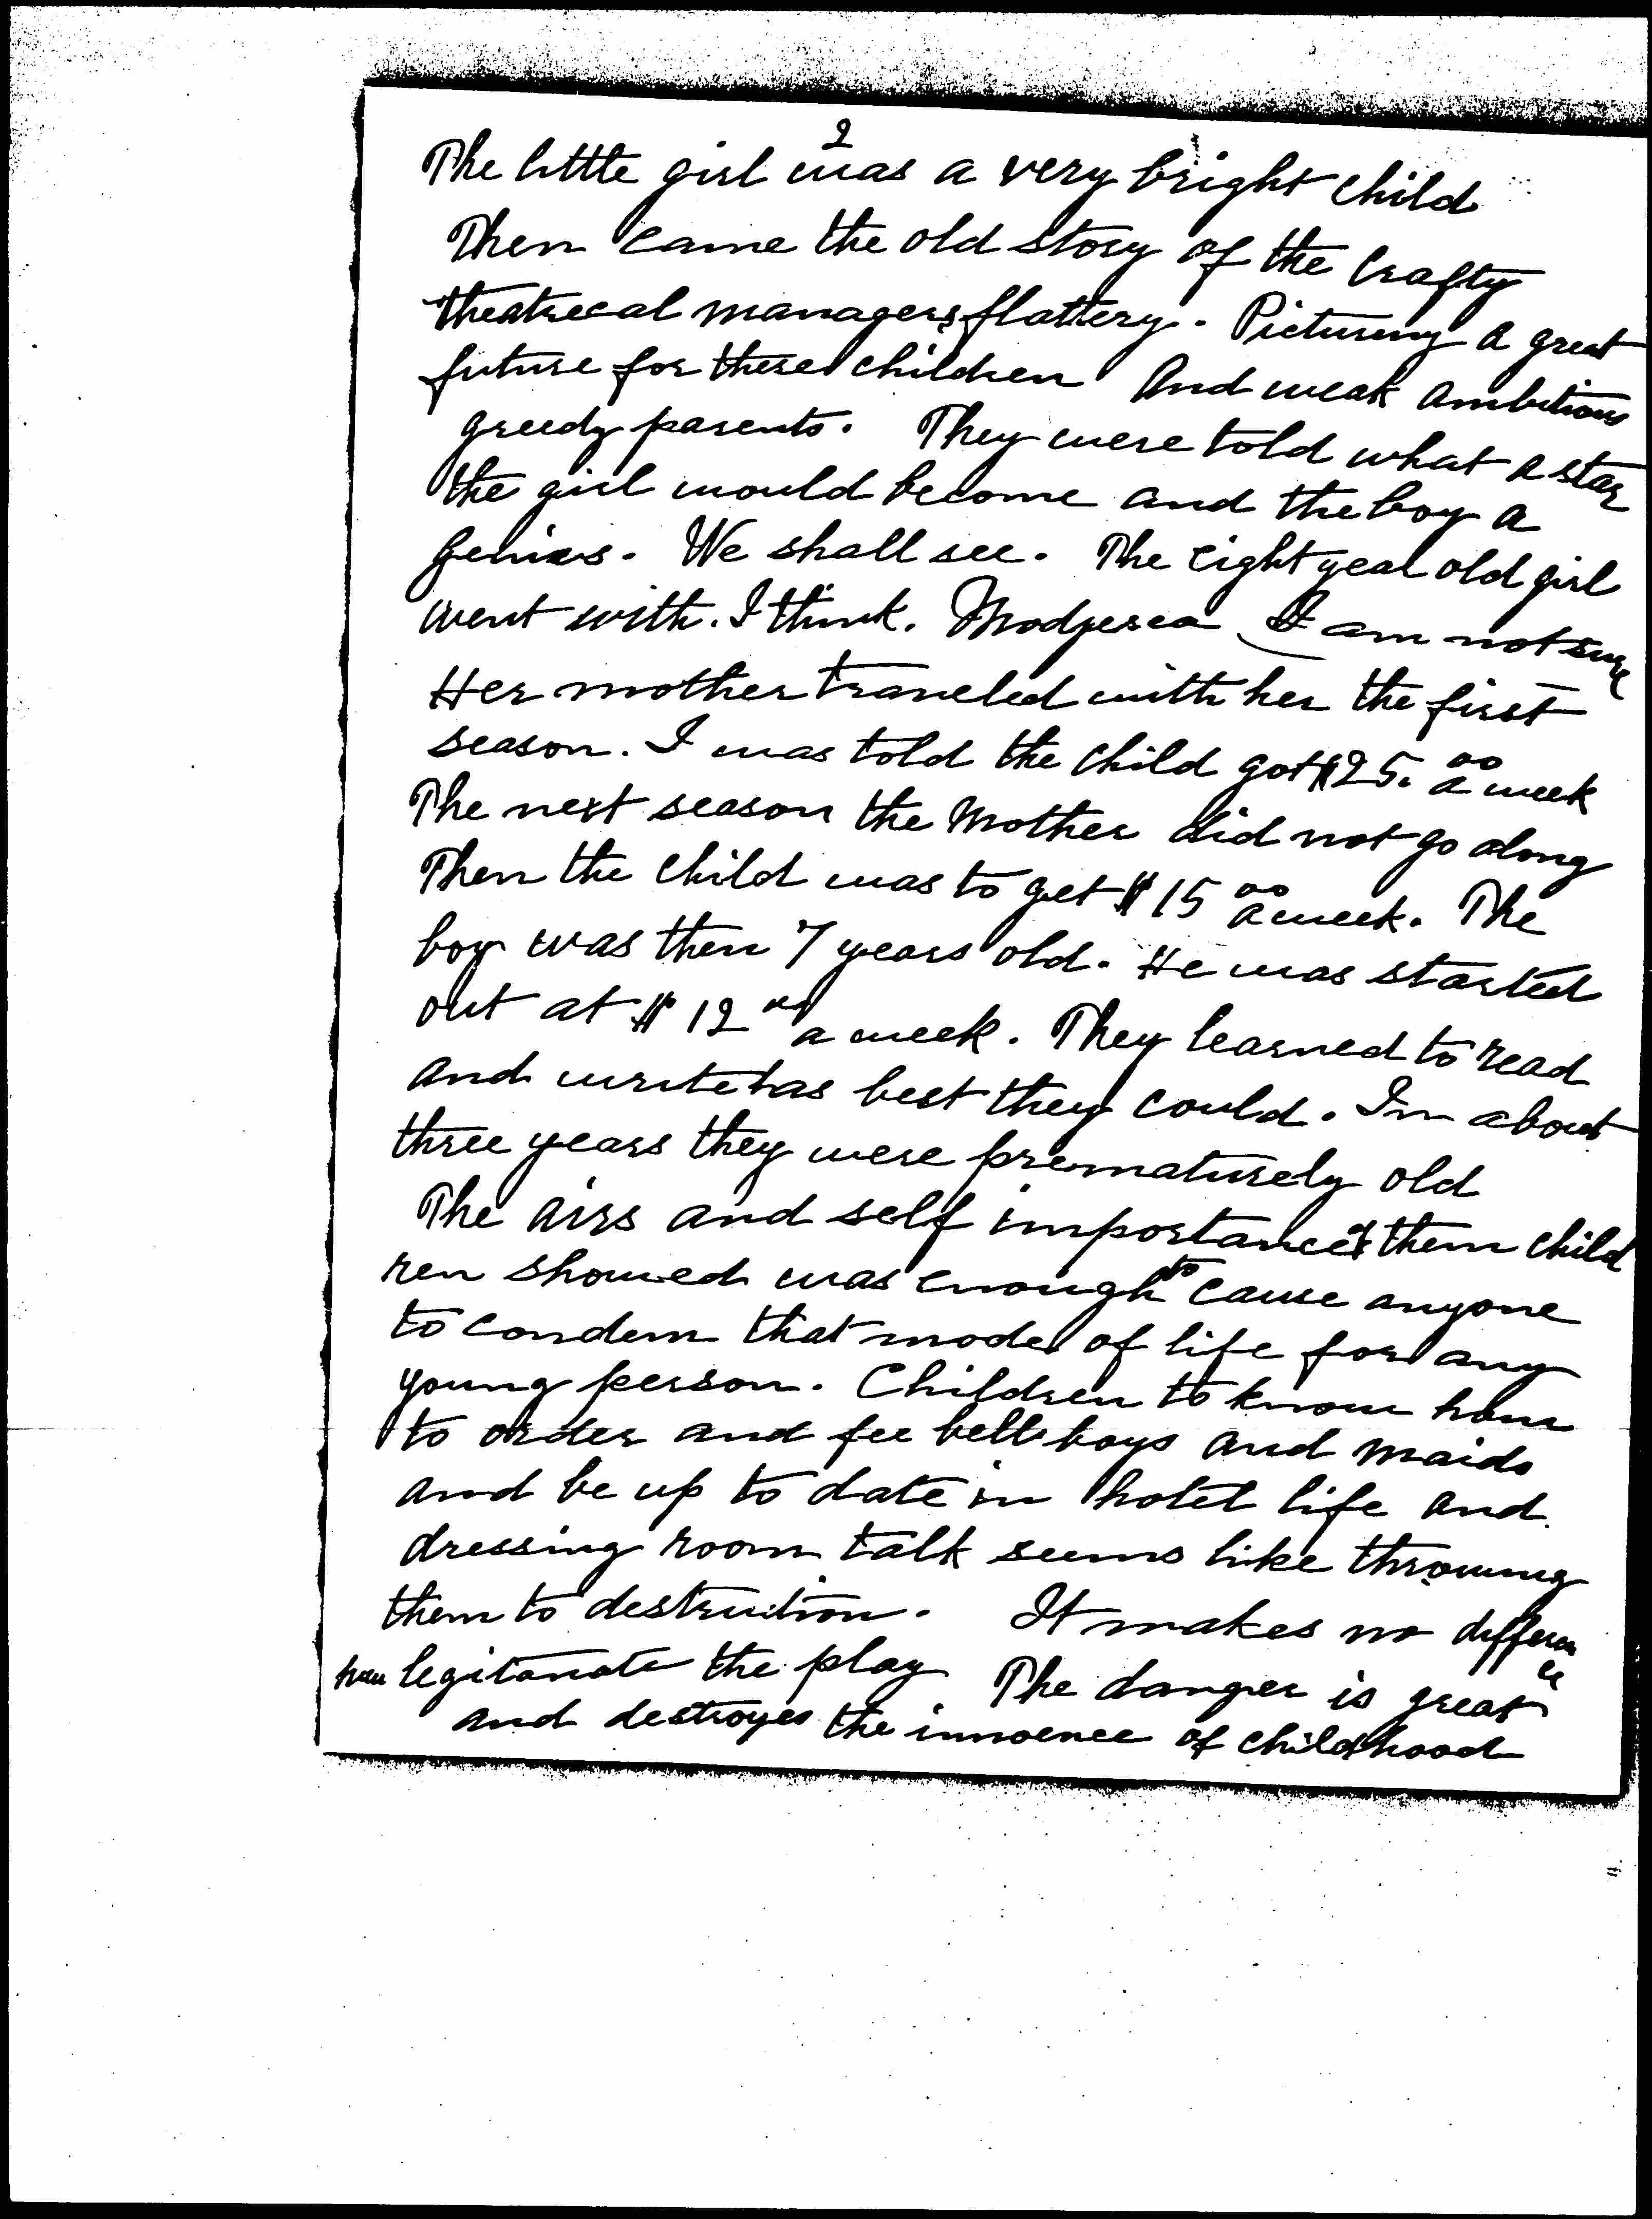 2
The little girl was a very bright child
Then came the old story of the crafty
theatrecal managers flattery. Picturing a great
future for these children And weak ambitious
greedy parents. They were told what a star
the girl would become and the boy a
genius. We shall see. The eight year old girl
went with. I think. Modjesca I am not sure
Her mother traveled with her the first
season. I was told the child got $25.00 a week
The next season the Mother did not go along
Then the child was to get $15 00 a week. The
boy was then 7 years old. He was started
out at $12 00 a week. They learned to read
and write as best they could. In about
three years they were prematurely old
The airs and self importance of them child
ren showed was enough to cause anyone
to condem that mode of life for any
young person. Children to know how
to order and fee bell boys and maids
and be up to date in hotel life and
dressing room talk seems like throwing
them to destruction. It makes no differen
ce
how legitamate the play The danger is great
and destroyes the innoence of childhood